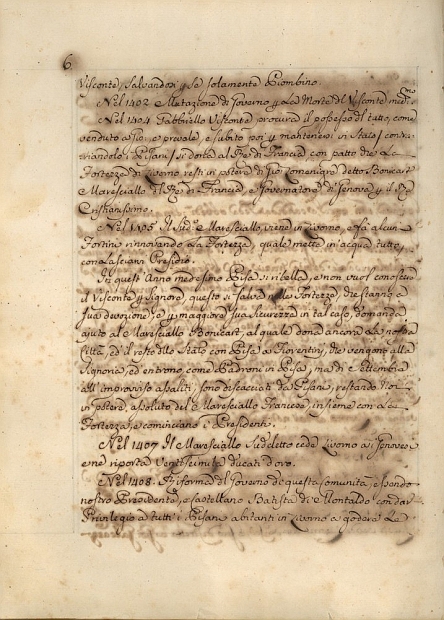 6
Visconte, Salvandosi p se solamente Piombino.
Nel 1402 Mutazione di Governo p La Morte del Visconte med.mo
Nel 1404 Gabbriello Visconte procura il possesso del tutto, come
venduto a Gio: e prevale, e subito poi p mantenersi in Stato contra
riandolo i Pisani si dona al Re di Francia con patto che La
Fortezza di Livorno resti in potere di Gio: detto Bonicart
Maresciallo del Re di Francia e Governatore di Genova p il Re
Cristianissimo.
Nel 1405 Il Sud.o Maresciallo, viene in Livorno, e fà alcun
Fortino rinnovando La Fortezza, quale mette in acqua tutto,
con lasciarvi Presidio.
In quest' Anno medesimo Pisa si ribella, e non vuol conoscere
il Visconte p Signore, questo si salva nelle Fortezze, che stanno a
sua devozione, e p maggiore sua sicurezza in tal caso, domanda
ajuto al Maresciallo Bonicart, al quale dona ancora La nostra
Città, e il resto dello Stato con Pisa a Fiorentini, che vengono alla
Signoria, ed entrono, come Padroni in Pisa, ma di Settembre
all' improviso assaliti, sono discacciati da Pisani, restando
in potere, assoluto del Maresciallo Francese, insieme con La
Fortezza, e cominciano i Presidenti.
Nel 1407 Il Maresciallo Suddetto cede Livorno a i Genovesi
e ne riporta Ventiseimila ducati d'oro.
Nel 1408. Riforma del Governo di questa Comunità, essendo
nostro Presidente, o Castellano Batista di Montaldo con dar
Privilegio a tutti i Pisani abitanti in Livorno a godere Le